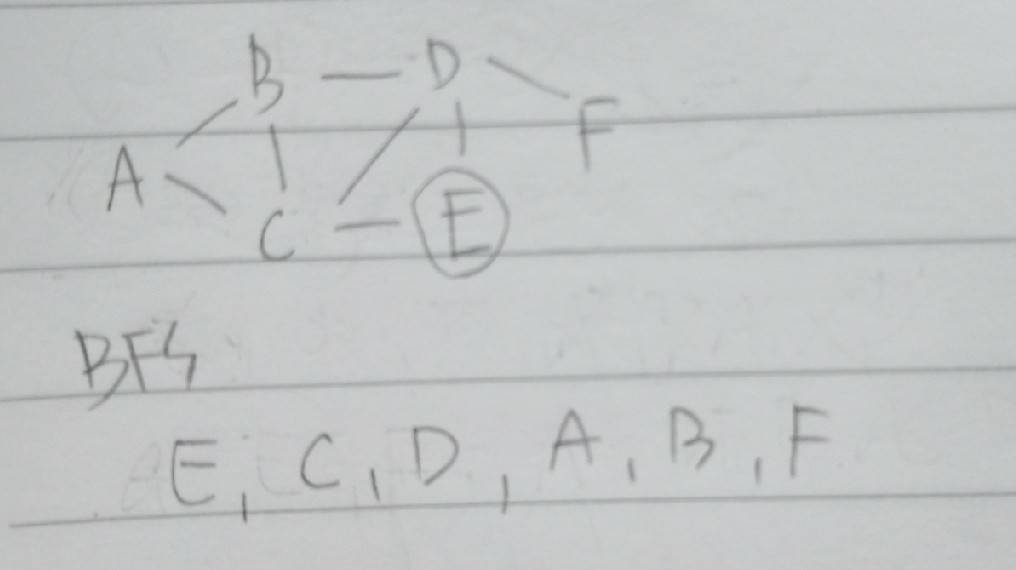 B D
F
A
C E
BFS
E, C, D, A, B, F